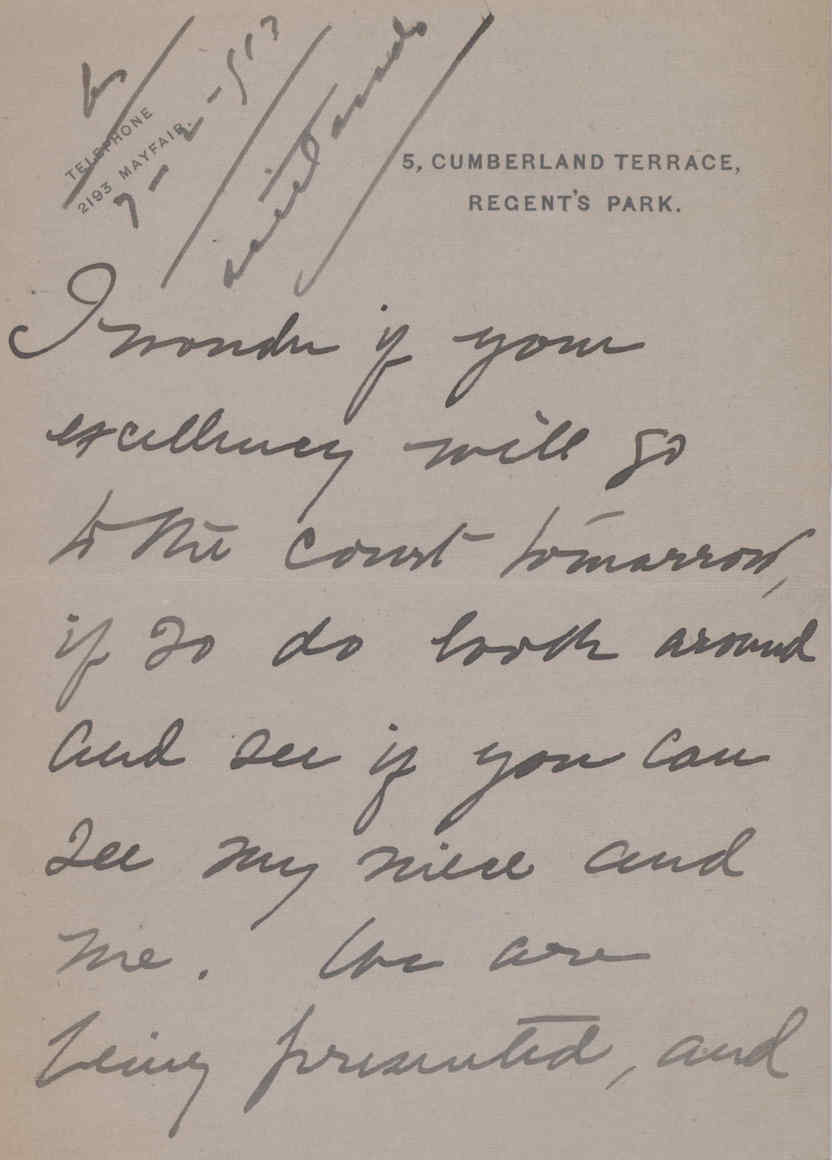 TELEPHONE
2193 MAYFAIR.
5, CUMBERLAND TERRACE,
REGENT'S PARK.
I wonder if your
excellency will go
to the court tomarrow,
if so do look around
and see if you can
see my niece and
me. We are
being presented, and